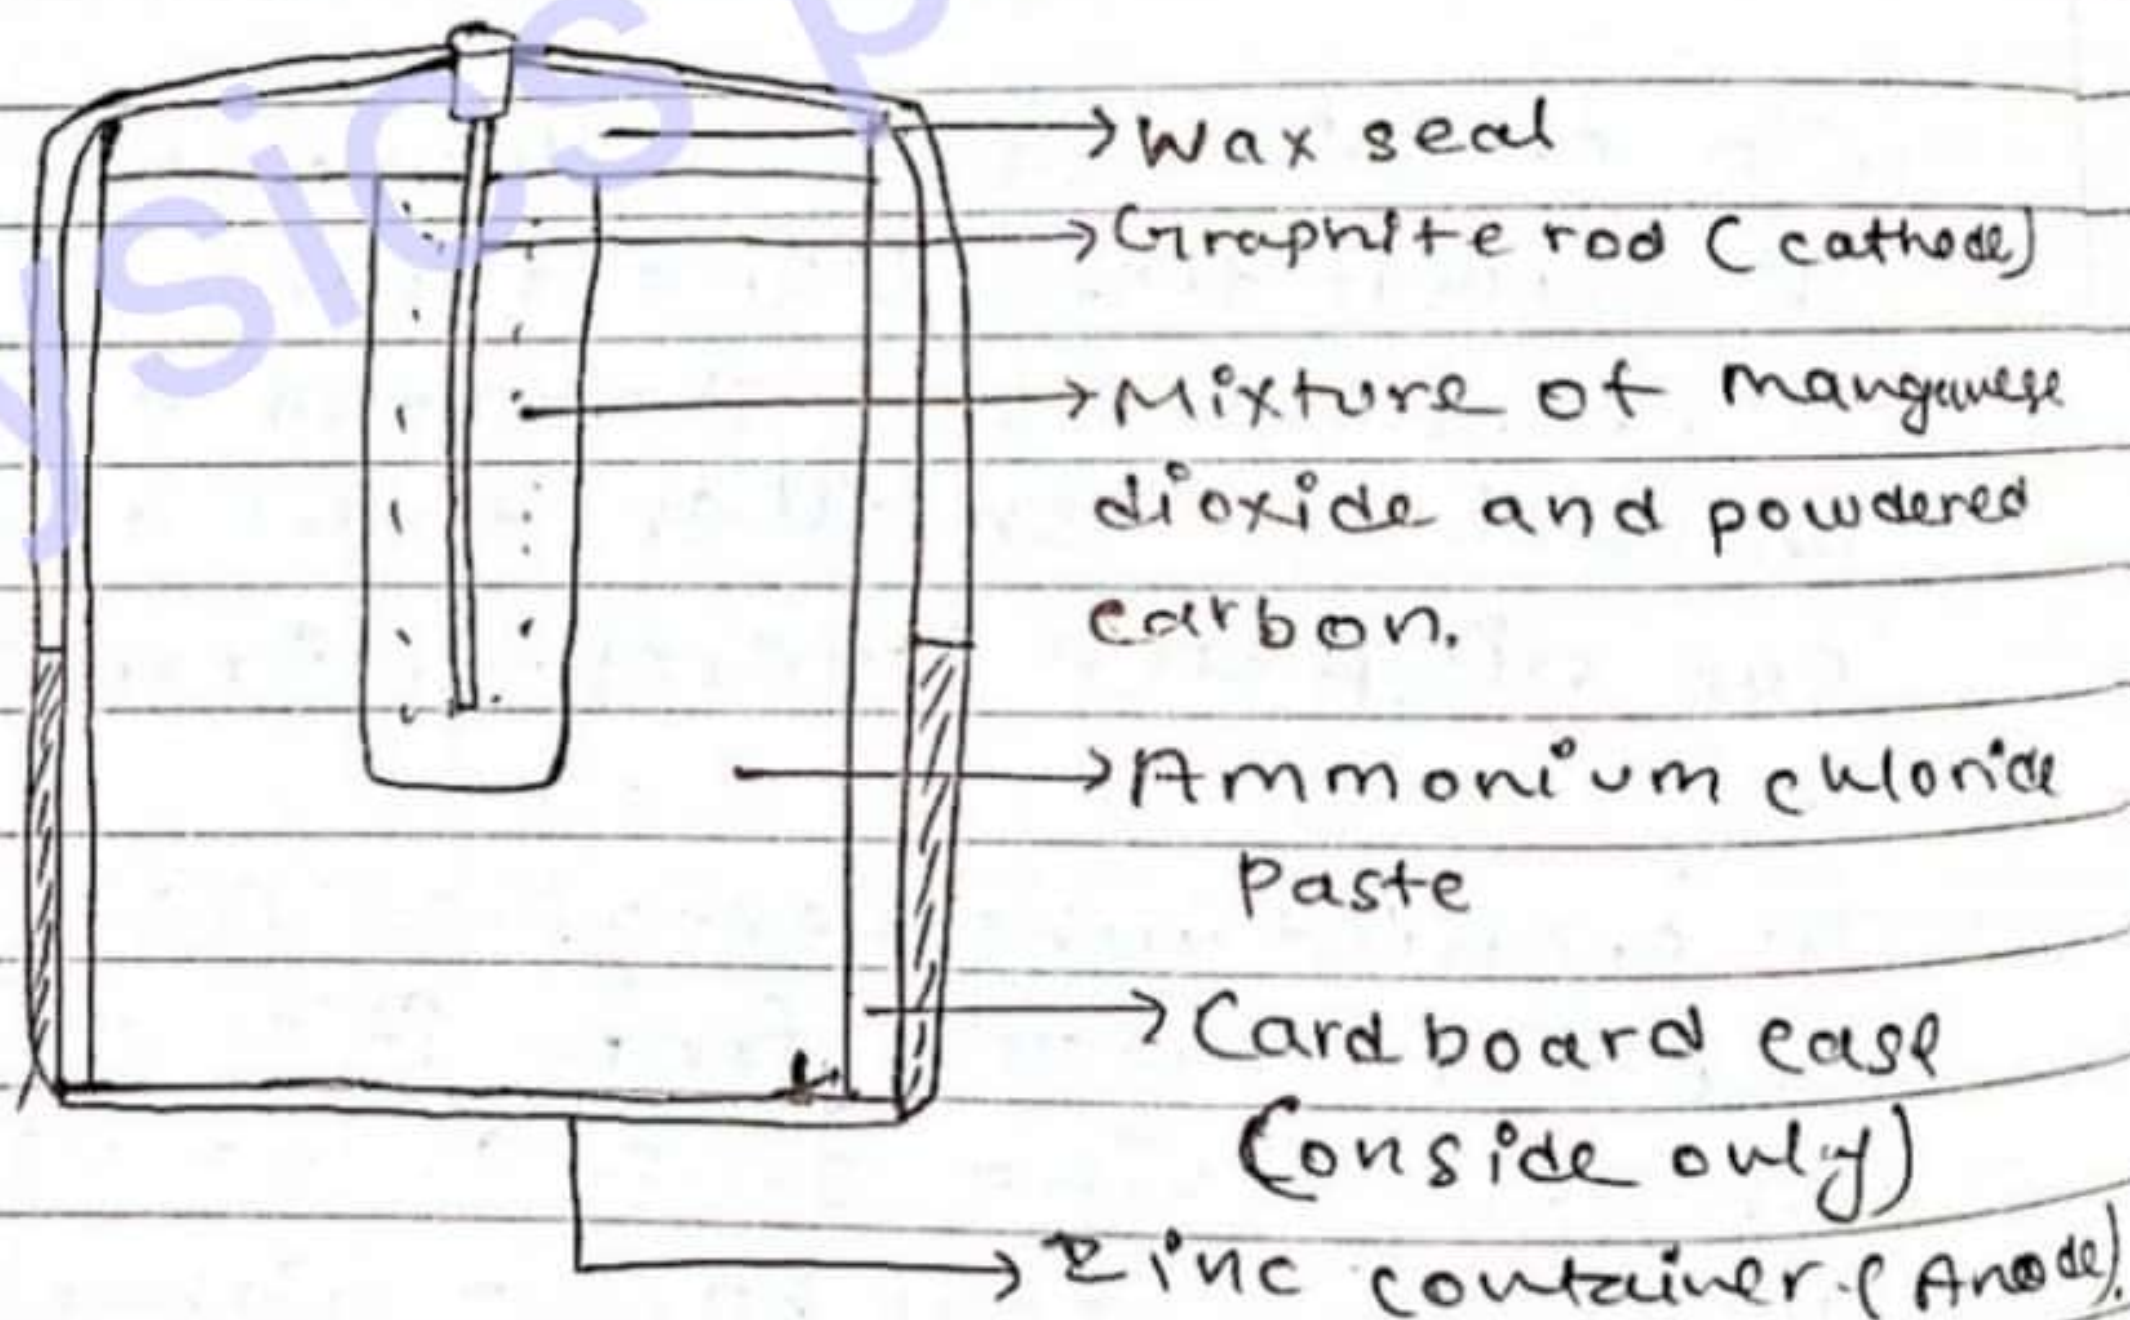 ysics p
Wax seal
Graphite rod (cathode)
Mixture of manganese
dioxide and powdered
carbon.
Ammonium chloride
Paste
Cardboard case
(onside only)
Zinc container. (Anode).